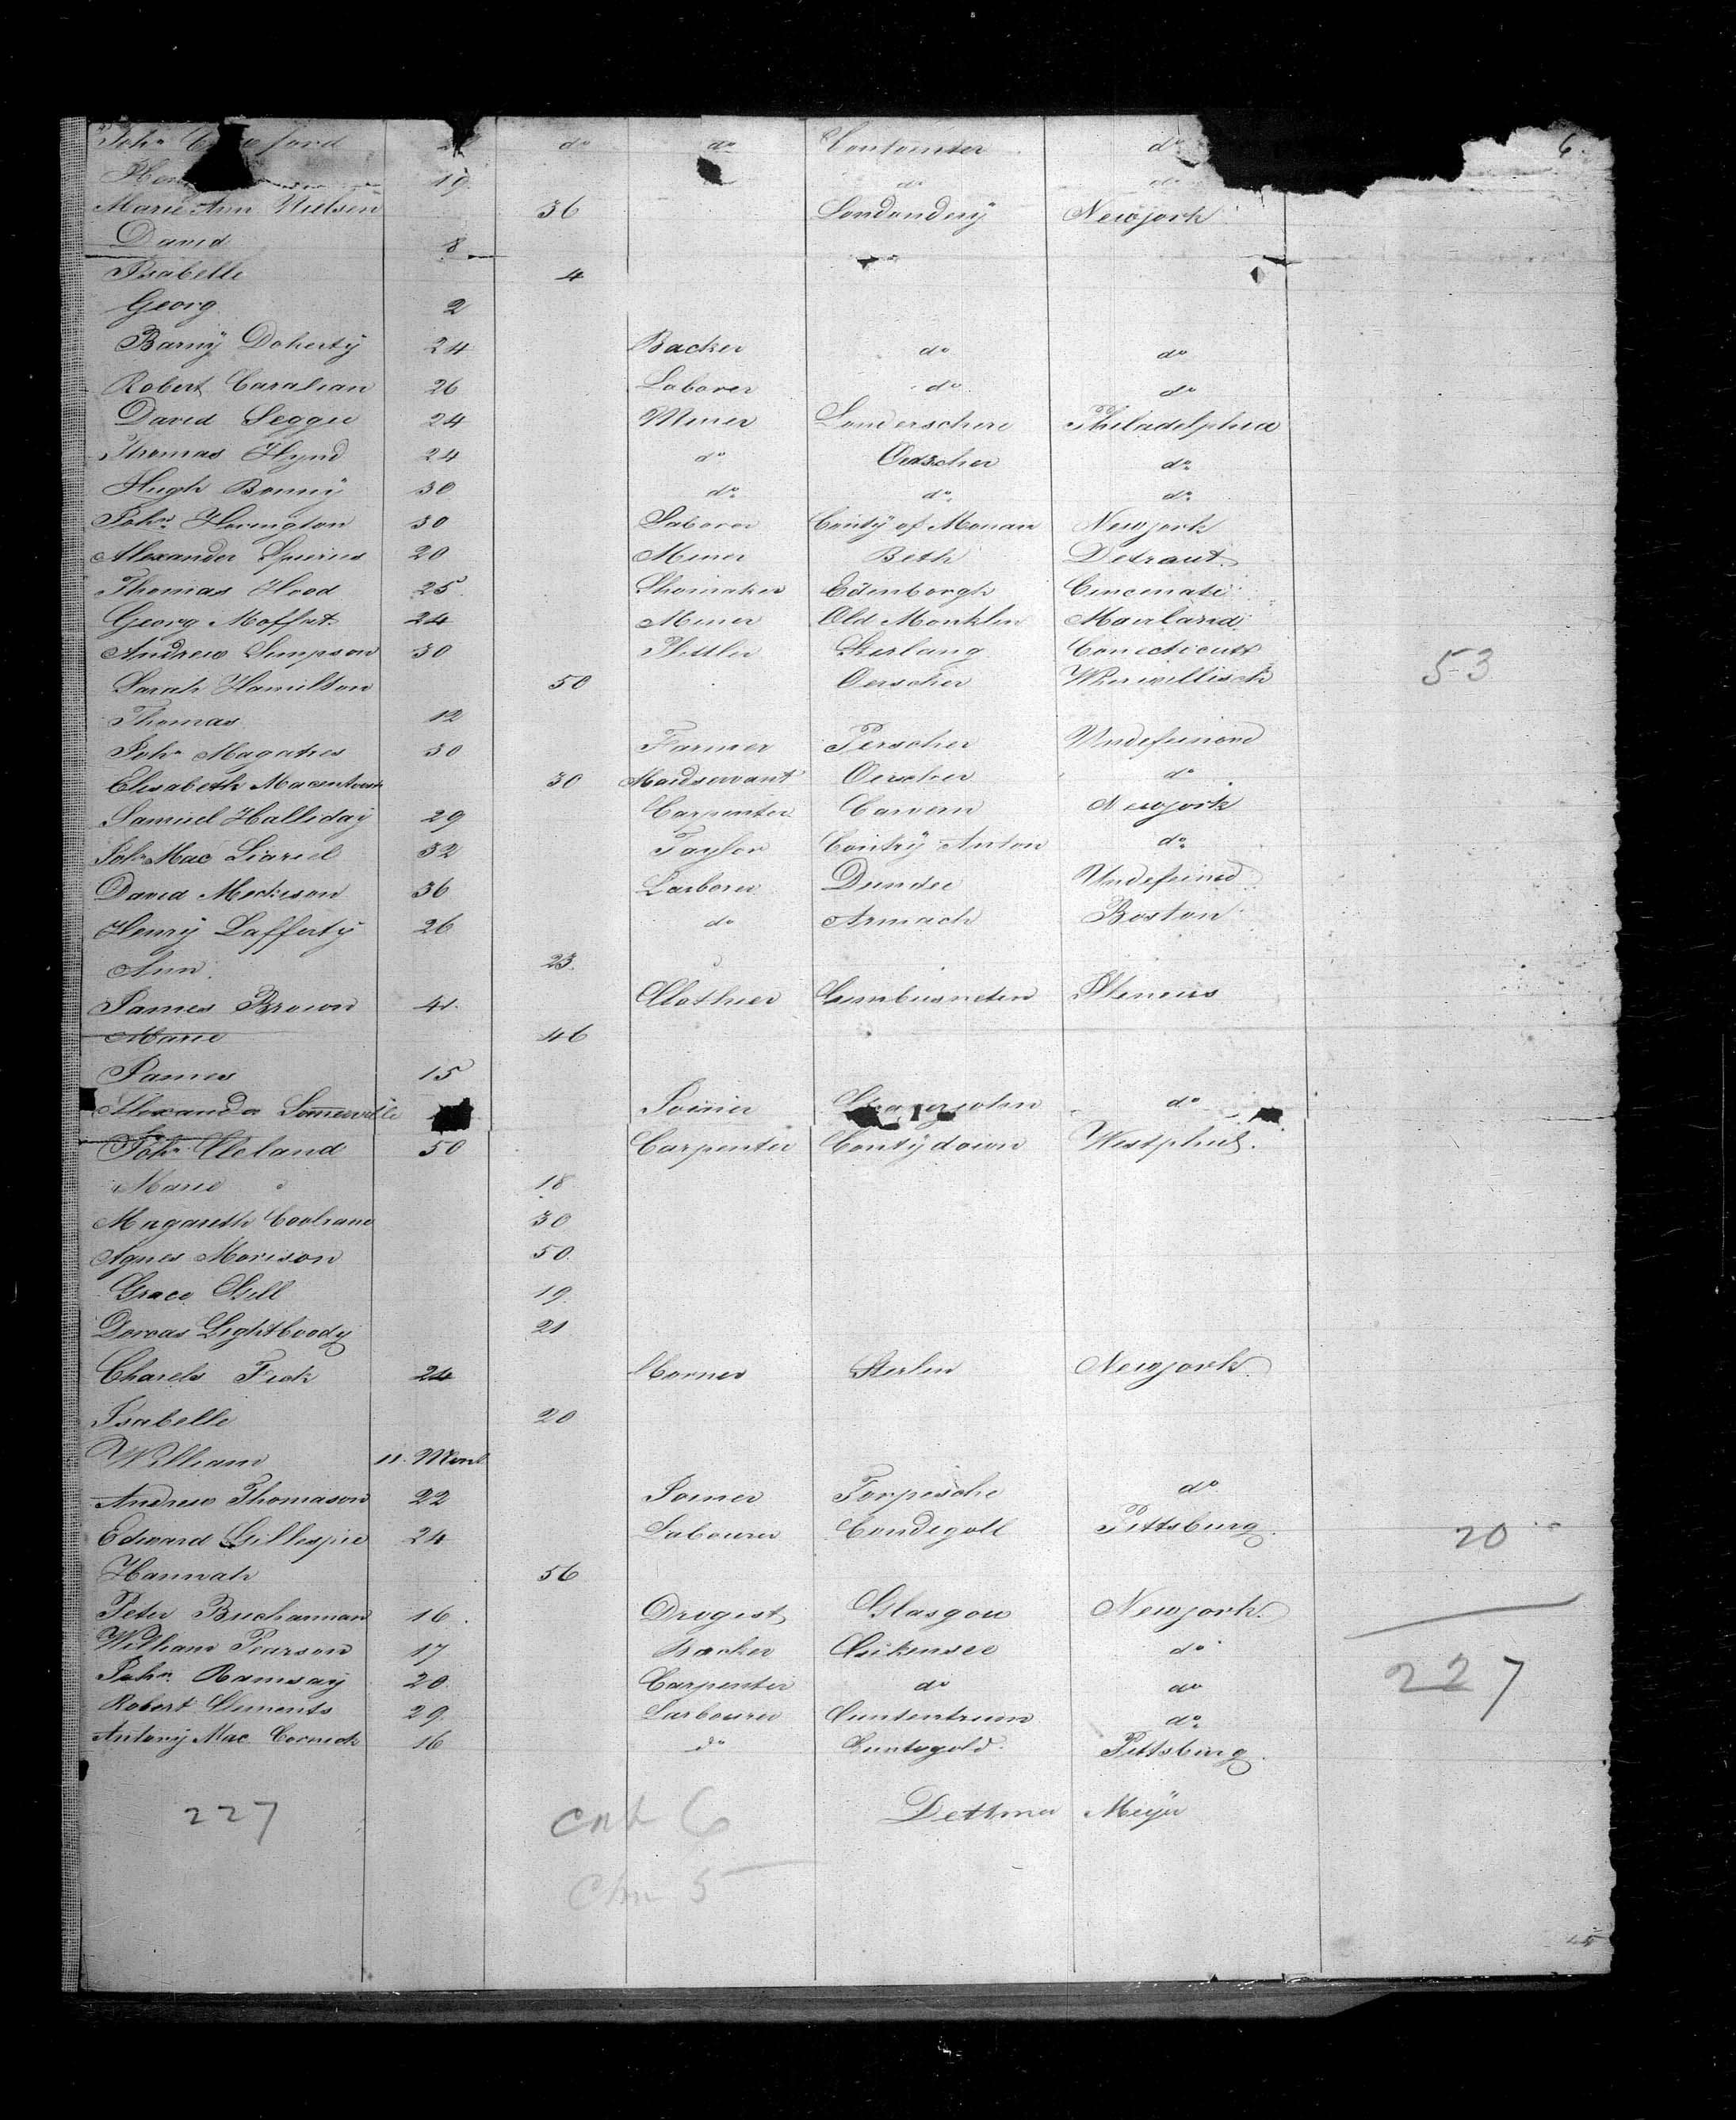 Joh⁠n ford d⁠o d⁠o Contomter d⁠o 6.
19 d⁠o d⁠o
Marie Ann Nielsen 36 Londondery Newjork
David 8
Isabelle 4
Georg 2
Barny Doherty 24 Backer do do
Robert Caralian 26 Laborer do do
David Seggie 24 Miner Londerschere Philadelphia
Thomas Hynd 24 do Oerscher do
Hugh Bonny 30 do do do
John Herington 30 Laborer County of Monan Newjork
Alexander Spieries 20 Miner Beth Detraut
Thomas Hood 25 Shomaker Edenborgh Cincinati
Georg Moffat 24 Miner Old Monklin Mairland
Andrew Simpson 30 Sterlang Conecticutt
Sarah Hamilton 50 Oerscher 53
Thomas 12
John Magathes 30 Farmer Perscher Undefeinend
Elisabeth Macentosh 30 Maidservant Oerscher do
Samuel Halliday 29 Carpenter Carvern Newjork
Joh Mac Liariel 32 Taylor Contry Anton do
David Meckison 36 Larborer Dundee Undefeind
Henry Lafferty 26 do Armach Boston
Ann 23
James Brown 41 Clothier Illeneus
Marie 46
James 15
Alexander Somerville Joiner do
John Cleland 50 Carpenter Contydown Westphul.
Marie 18
Magareth Coolrane 30
Agnes Morison 50
Grace Gill 19
Dorcas Lightboody 21
Charels Fick 24 Sterlin Newjork
Isabelle 20
William 11. Mont
Andrew Thomason 22 Joiner Forpesche do
Edward Gillespie 24 Labourer Condegall Pittsburg 20
Hannah 56
Peter Buchannan 16 Drogist Glasgow Newjork
William Pearson 17 Backer do
John Ramsay 20 Carpenter do do 227
Robert Clements 29 Larbourer Cuntentruon do
Antony Mac Cormick 16 do Cuntegold Pittsburg
227 6 Dettmer Meyer
Chn 5